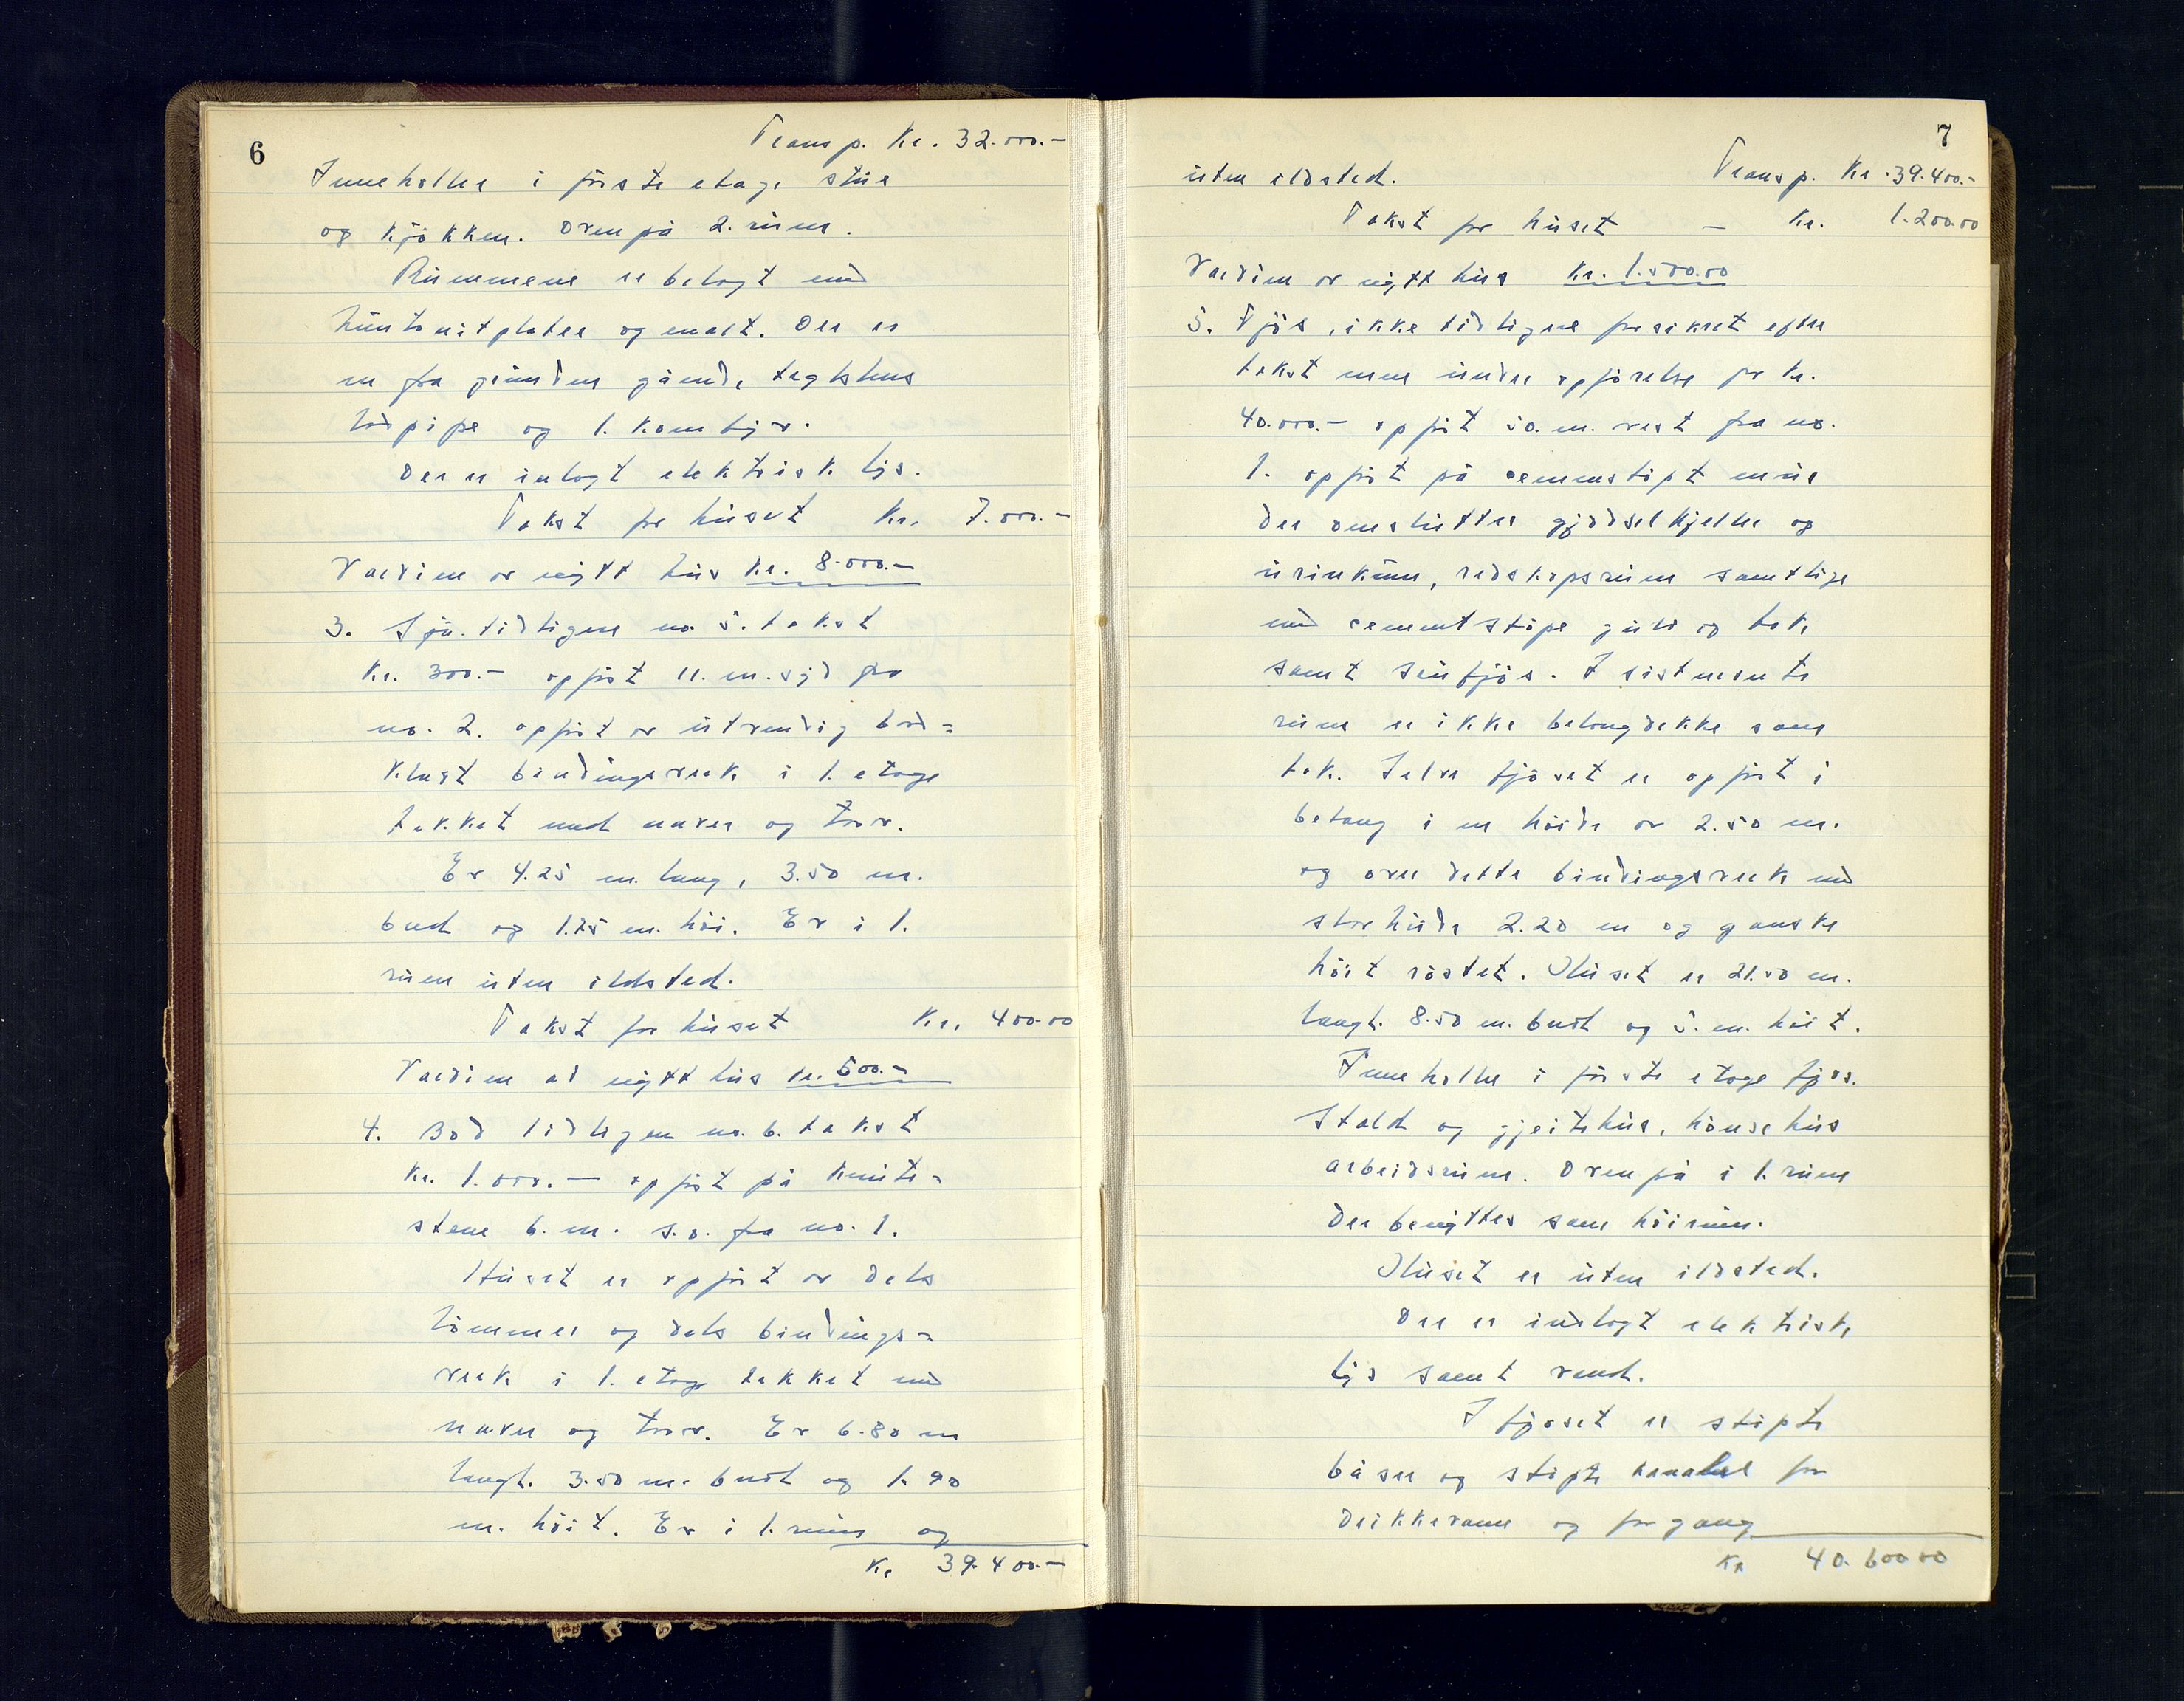 6
Transp. Kr. 32.000.-
Inneholder i første etage stue
og kjøkken. Ovenpå 2. rum.
Rummene er belagt med
huntonitplater og malt. Der er
en fra grunden gående teglstens
lodpipe og 1. komfyr.
Der er inlagt elektrisk lys.
Takst for huset Kr. 7.000.-
Værdien av nytt hus Kr. 8.000.-
3. Sjå. tidligere no. 5. takst
Kr. 300.- opført 11. m. syd fra
no. 2. opført av utvendig bord-
klædt bindingsverk i 1. etage
tækket med næver og torv.
Er 4.25 m. lang, 3.50 m.
bred og 1.75 m. høi. Er i 1.
rum uten ildsted.
Takst for huset Kr. 400.00
Værdien av nytt hus kr. 500.-
4. Bod tidligere no. 6. takst
Kr. 1.000.- opført på knute-
stene 6. m. s.ø. fra no. 1.
Huset er opført av dels
tømmer og dels bindings-
verk i 1. etage tekket med
næver og torv. Er 6.80 m
langt. 3.50 m. bredt og 1.90
m. høit. Er i 1. rum og
Kr 39.400.-
7
uten ildsted. Transp. Kr. 39.400.-
Takst for huset - Kr. 1.200.00
Værdien av nytt hus Kr. 1.500.00
5. Fjøs, ikke tidligere forsikret efter
takst men under opførelse for kr.
40.000.- opført 50. m. vest fra no.
1. opført på cemenstøpt mur
der omslutter gjødselkjeller og
urinkum, redskapsrum samtlige
med cementstøpe gulv og tak
samt saufjøs. I sistnevnte
rum er ikke betongdekke som
tak. Selve fjøset er opført i
betong i en høide av 2.50 m.
og over dette bindingsverk med
stavhøide 2.20 m og ganske
høit røstet. Huset er 21.50 m.
langt. 8.50 m. bredt og 5. m. høit.
Inneholder i første etage fjøs.
Stald og gjeitehus, hønsehus
arbeidsrum. Ovenpå i 1. rum
der benyttes som høirum.
Huset er uten ildsted.
Der er indlagt elektrisk
lys samt vand.
I fjøset er støpte
båser og støpte kanaler for
drikkevann og forgang
Kr 40.600 00